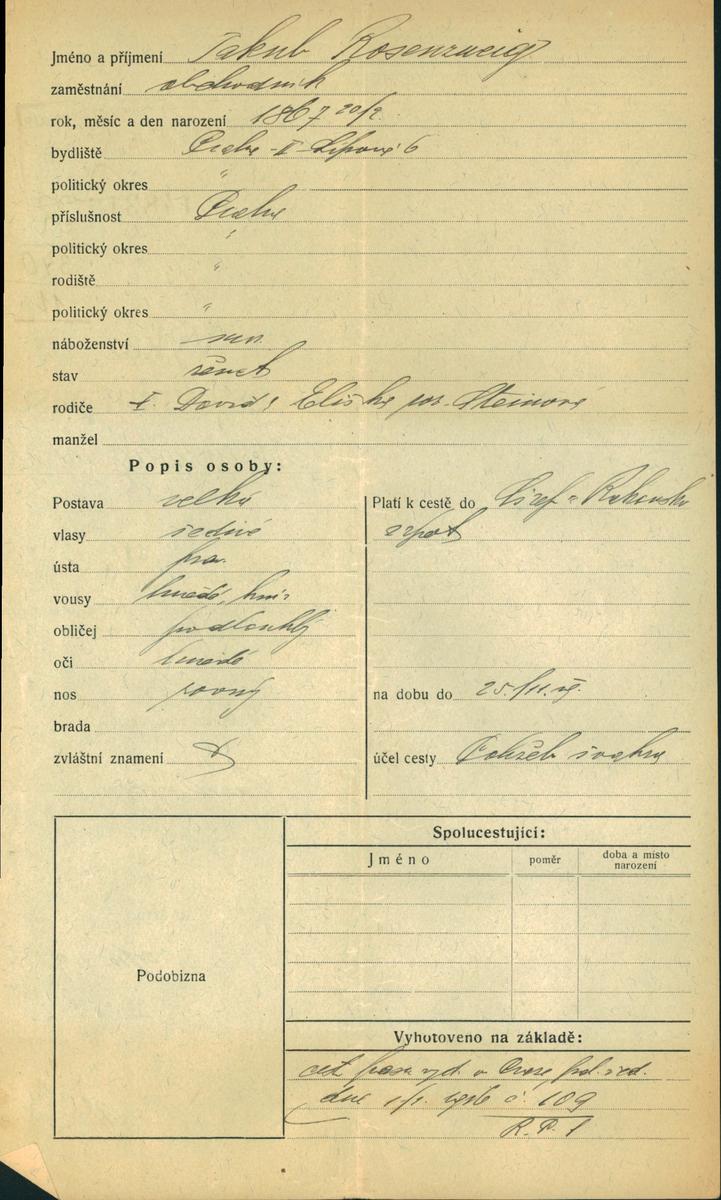 Jméno a příjmení Jakub Rosenzweig
zaměstnání obchodník
rok, měsíc a den narození 1867 20/2.
bydliště Praha - II - Lipová 6
politický okres "
příslušnost Praha
politický okres "
rodiště "
politický okres "
náboženství
stav ženat
rodiče † David, Eliška roz. Steinová
manžel
Popis osoby:
Postava velká
vlasy šedivé
ústa pra.
vousy hnědé, knír
obličej podlouhlý
oči hnědé
nos rovný
brada
zvláštní znamení
Platí k cestě do Rakouska
zpět
na dobu do 25./
účel cesty Pohřeb švakra
Spolucestující:
Jméno
poměr
doba a místo
narození
Podobizna
Vyhotoveno na základě:
cest. pasu vyd. v pol. řed.
dne 1/1. 1916 č. 109
R. P. 1